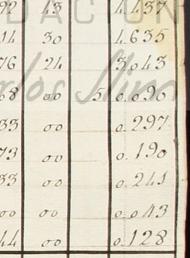 DACIÓN
92 43 1.437
14 30 1.635
76 24 3.043
Carlos Slim
68 00 5 0.096
33 00 0.297
73 00 0.190
33 00 0.241
00 00 0.043
44 00 0.128